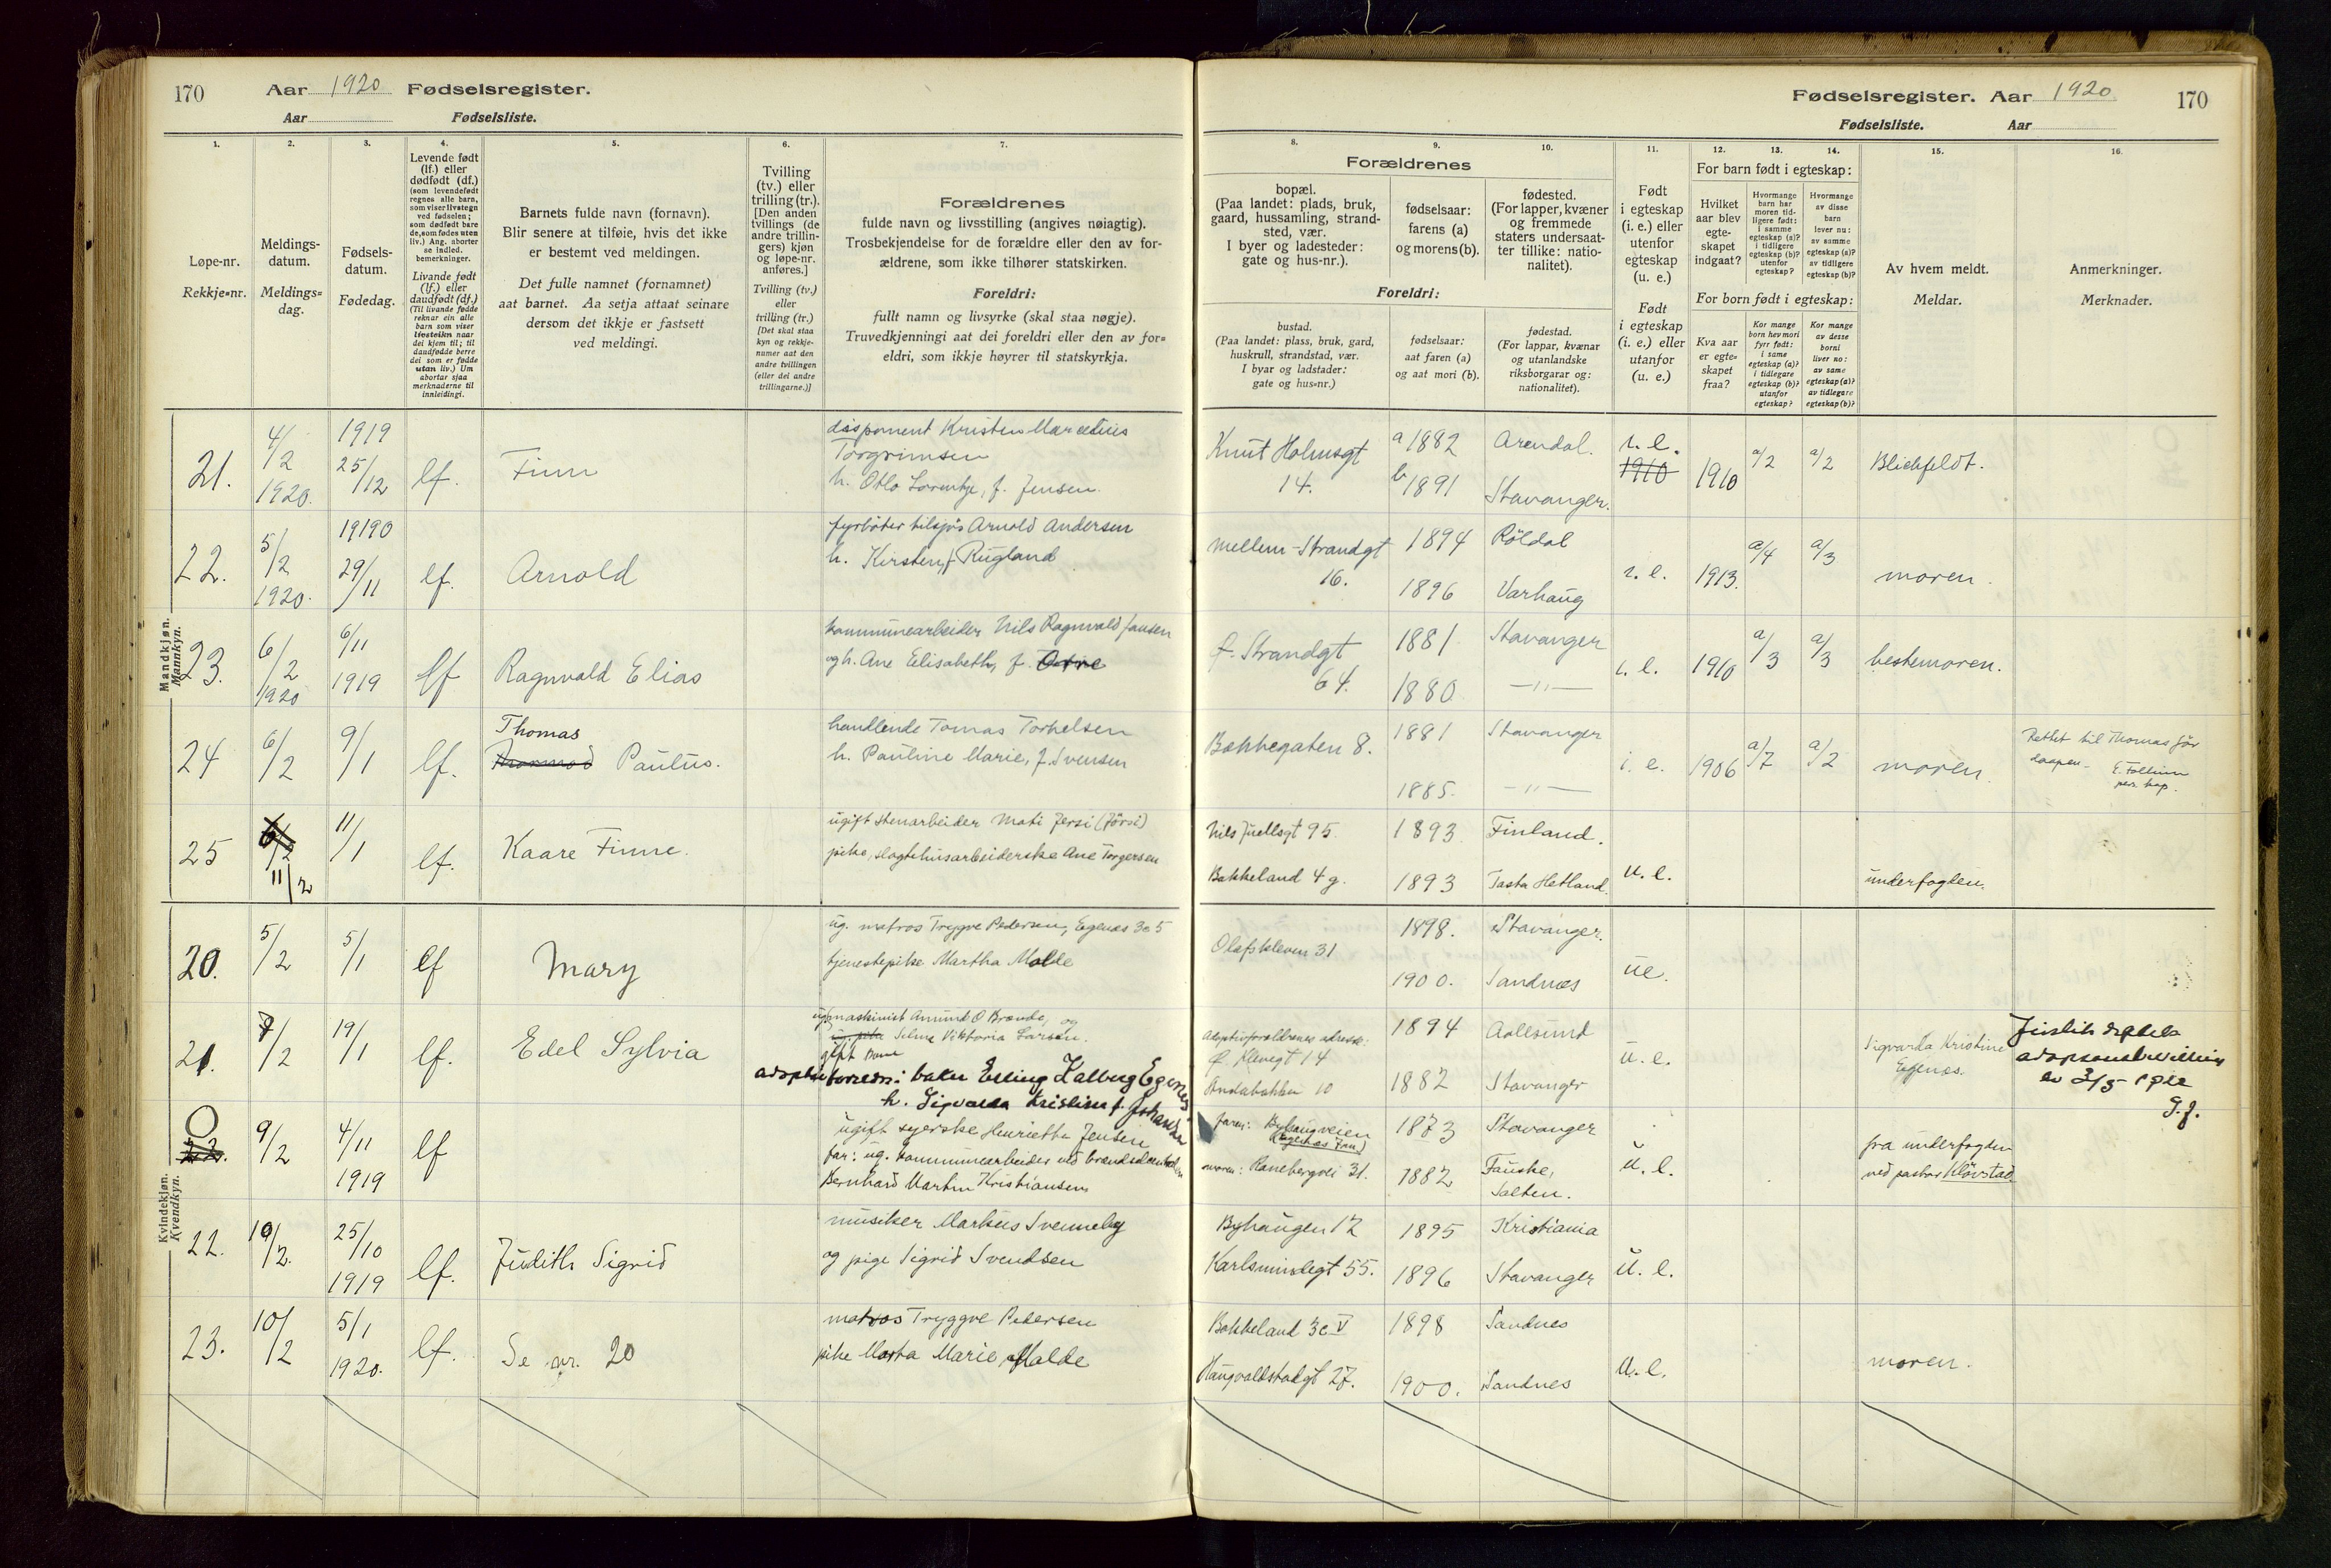 170 Aar 1920 Fødselsregister.
Aar Fødselsliste.
Fødselsregister. Aar 1920 170
Fødselsliste. Aar
1.
Løpe-nr.
Rekkje=nr.
2.
Meldings-
datum.
Meldings=
dag.
3.
Fødsels-
datum.
Fødedag.
4.
Levende født
(lf.) eller
dødfødt (df.)
(som levendefødt
regnes alle barn,
som viser livstegn
ved fødselen;
som dødfødt bare
de, som fødes uten
liv.) Ang. aborter
se indled.
bemerkninger.
Livande født
(lf.) eller
daudfødt (df.)
(Til livande fødde
reknar ein alle
barn som viser
livsteikn naar
dei kjem til; til
daudfødde berre
dei som er fødde
utan liv.) Um
abortar sjaa
merknaderne til
innleidingi.
5.
Barnets fulde navn (fornavn).
Blir senere at tilføie, hvis det ikke
er bestemt ved meldingen.
Det fulle namnet (fornamnet)
aat barnet. Aa setja attaat seinare
dersom det ikkje er fastsett
ved meldingi.
6.
Tvilling
(tv.) eller
trilling (tr.).
[Den anden
tvillings (de
andre trillin-
gers) kjøn
og løpe-nr.
anføres.]
Tvilling (tv.)
eller
trilling (tr.)
[Det skal staa
kyn og rekkje-
numer aat den
andre tvillingen
(eller dei andre
trillingarne.)]
7.
Forældrenes
fulde navn og livsstilling (angives nøiagtig).
Trosbekjendelse for de forældre eller den av for-
ældrene, som ikke tilhører statskirken.
Foreldri:
fullt namn og livsyrke (skal staa nøgje).
Truvedkjenningi aat dei foreldri eller den av for=
eldri, som ikkje høyrer til statskyrkja.
8.
Forældrenes
bopæl.
(Paa landet: plads, bruk,
gaard, hussamling, strand-
sted, vær.
I byer og ladesteder:
gate og hus-nr.).
Foreldri:
bustad.
(Paa landet: plass, bruk, gard,
huskrull, strandstad, vær.
I byar og ladstader:
gate og hus=nr.)
9.
fødselsaar:
farens (a)
og morens (b).
fødselsaar:
aat faren (a)
og aat mori (b).
10.
fødested.
(For lapper, kvæner
og fremmede
staters undersaat-
ter tillike: natio-
nalitet).
fødestad.
(For lappar, kvænar
og utanlandske
riksborgarar og:
nationalitet).
11.
Født
i egteskap
(i. e.) eller
utenfor
egteskap
(u. e.)
Født
i egteskap
(i. e.) eller
utanfor
egteskap
(u. e.)
12. 13. 14.
For barn født i egteskap:
Hvilket
aar blev
egte-
skapet
indgaat?
Hvormange
barn har
moren tid-
ligere født:
i samme
egteskap (a)?
i tidligere
egteskap (b)?
utenfor
egteskap?
Hvormange
av disse
barn
lever nu:
av samme
egteskap (a)?
av tidligere
egteskap (b)?
For born født i egteskap:
Kva aar
er egte=
skapet
fraa?
Kor mange
born hev mori
fyrr født:
i same
egteskap (a)?
i tidlegare
egteskap (b)?
utanfor
egteskap?
Kor mange
av desse
borni
liver no:
av same
egteskap (a)?
av tidlegare
egteskap (b)?
15.
Av hvem meldt.
Meldar.
16.
Anmerkninger.
Merknader.
Mandkjøn.
Mannkyn.
21. 4/2 1920. 1919 25/12 lf. Finn
disponent Kristen Marcelius
Torgrimsen
h. Otlo Lorentze, f. Jensen.
Knut Holmsgt
14.
a 1882 Arendal.
b 1891 Stavanger.
i. e. 1910 1910 a/2 a/2 Blichfeldt.
22. 5/2 1920. 19190 29/11 lf. Arnold
fyrbøter tilsjøs Arnold Andersen
h. Kirsten, f. Rugland
Mellem-Strandgt
16.
1894 Röldal
1896 Varhaug
i. e. 1913. a/4 a/3 moren.
23. 6/2 1920 6/11 1919 lf Ragnvald Elias
kommunearbeider Nils Ragnvald Jansen
og h. Ane Elisabeth, f.
Ø. Strandgt
64.
1881 Stavanger
1880 —"—
i. e. 1910 a/3 a/3 bestemoren.
24 6/2 9/1 lf. Thomas
Paulus.
handlende Tomas Torkelsen
h. Pauline Marie, f. Svensen
Bakkegaten 8.
1881 Stavanger
1885. —"—
i. e. 1906 a/7 a/2 moren.
Rettet til Thomas før
daapen.
25 6/2 11/2 11/1 lf. Kaare Finne.
ugift stenarbeider Mati Jersi (Jörsi)
pike, slagtehusarbeiderske Ane Torgersen
Nils Juellsgt 95. 1893 Finland.
Bakkeland 4 g. 1893 Tasta Hetland.
u. e. underfogden.
Kvindekjøn.
Kvendkyn.
20. 5/2 5/1 lf Mary
ug. matros Trygve Pedersen, Egenæs 3c 5
tjenestepike Martha Malde
Olafskleven 31
1898. Stavanger.
1900. Sandnæs
ue.
21. 7/2 19/1 lf. Edel Sylvia
ug. maskinist Amund O Brande, og
ug. pike Selma Viktoria Larsen.
gift
adoptivforeldre: baker Elling Kalberg Egenes
h. Sigvarda Kristine f. Johansen
adoptivforældrenes adresse:
Ø. Klevegt 14
Andabakken 10
1894 Aalesund
1882 Stavanger
u. e. Sigvarda Kristine
Egenæs.
G. J.
22. 9/2 4/11 1919 lf
ugift syerske Henriette Jensen
far: ug. kommunearbeider ved brandsdamholmen
Bernhard Martin Kristiansen
faren: Byhaugveien
(Egenæs Jon)
moren: Ranebergvei 31.
1873 Stavanger
1882 Fauske,
Salten.
u. e. fra underfogden
ved pastor Kløvstad
22. 10/2. 25/10 1919 lf. Judith Sigrid
musiker Markus Svenneby
og pige Sigrid Svendsen
Byhaugen 12 1895 Kristiania
Karlsminnegt 55. 1896 Stavanger
u. e.
23. 10/2 5/1 1920. lf. Se nr. 20
matros Tryggve Pedersen
pike Marta Marie Malde
Bakkeland 3c V 1898 Sandnes
Haugvaldstadgt 27. 1900. Sandnes
u. e. moren.